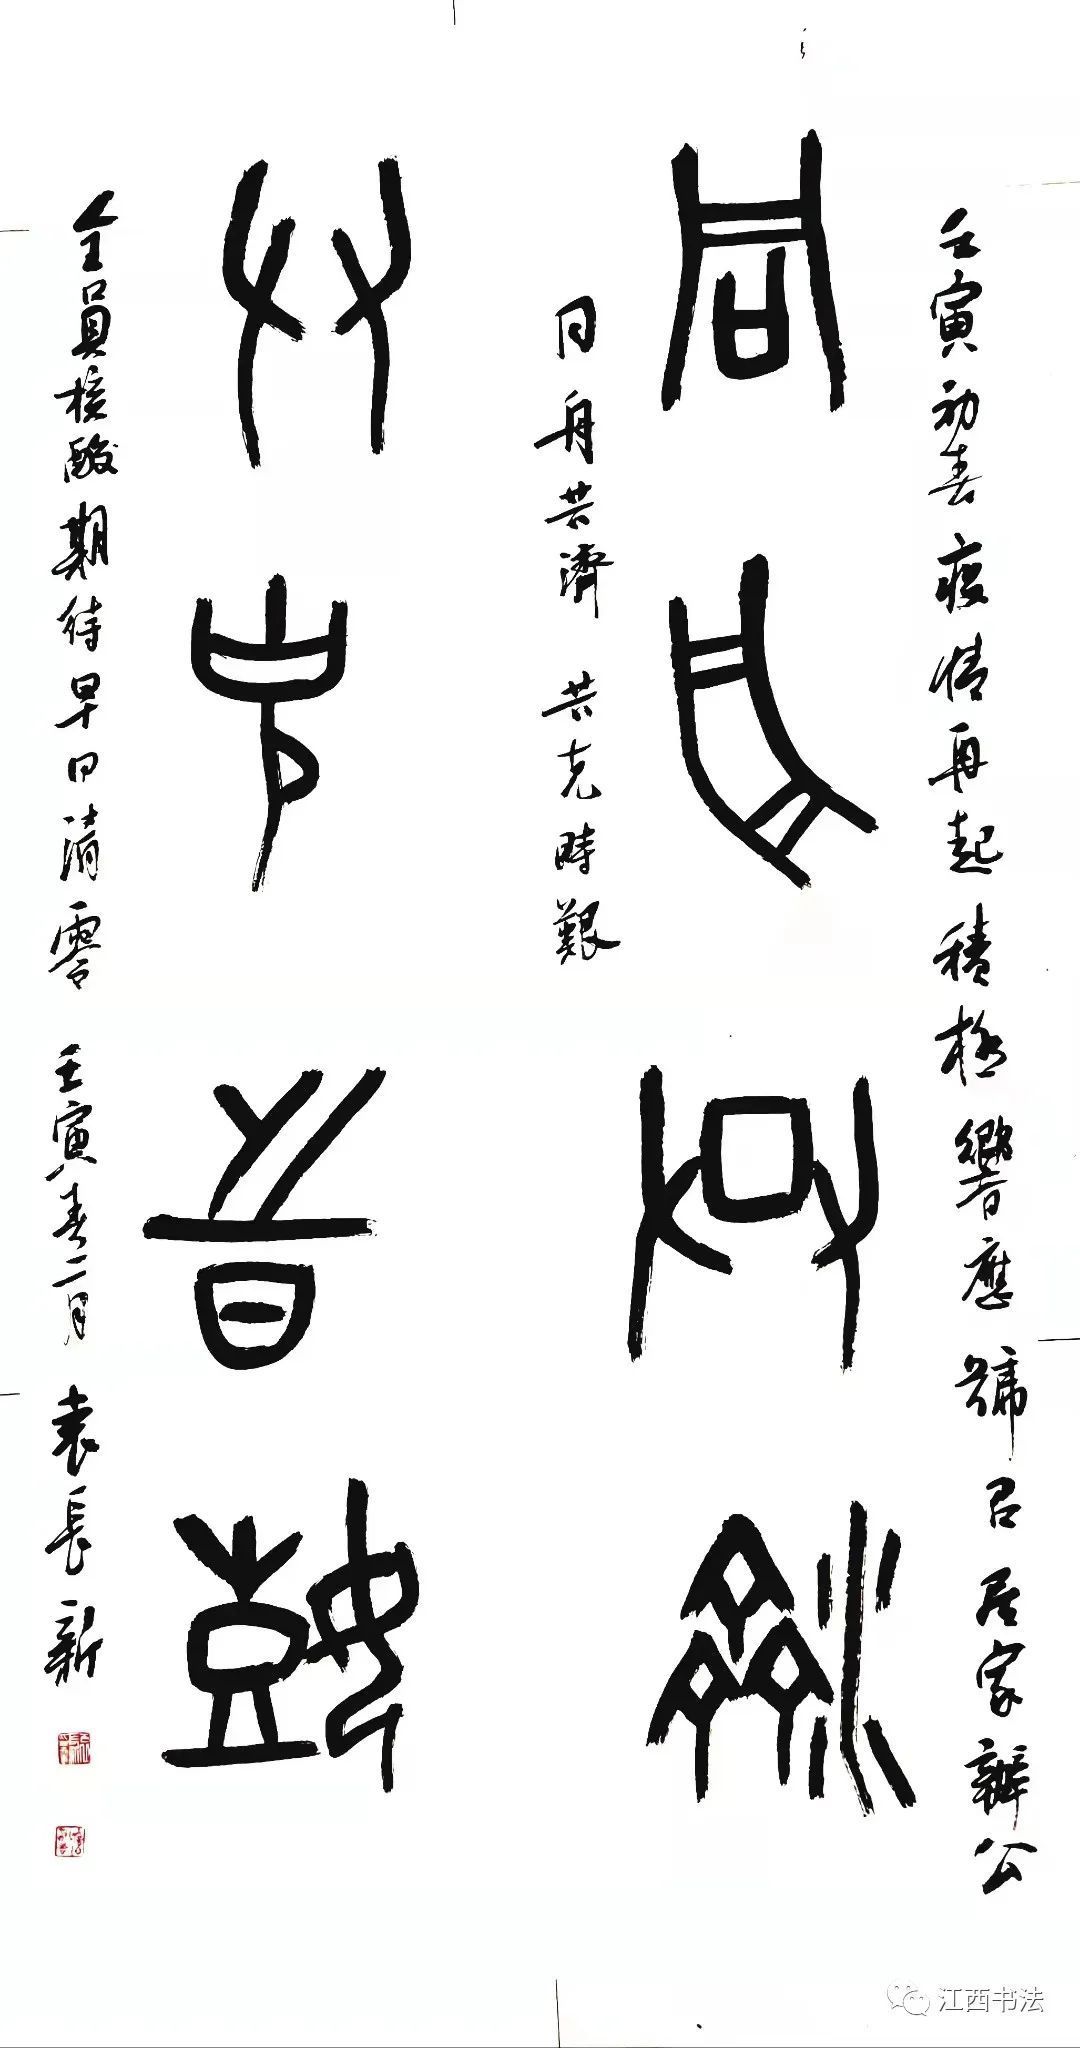 壬寅初春疫情再起積極響應號召居家辦公
同舟共濟
同舟共濟 共克時艱
共克時艱
全員核酸期待早日清零 壬寅春二月 袁長新
江西书法